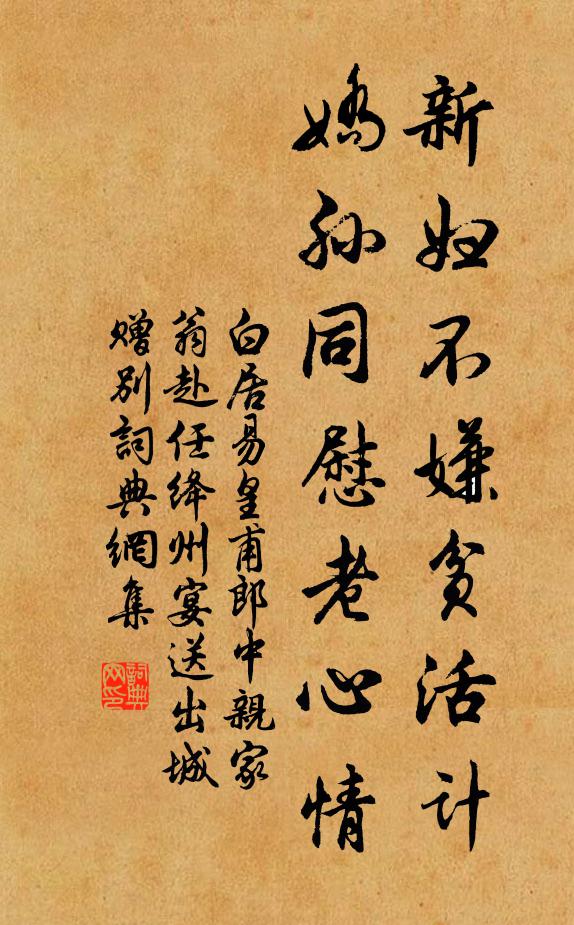 新妇不嫌貧活计
嬌孙同慰老心情
白居易皇甫郎中親家
翁赴任绛州宴送出城
赠别詞典網集
詞典网印